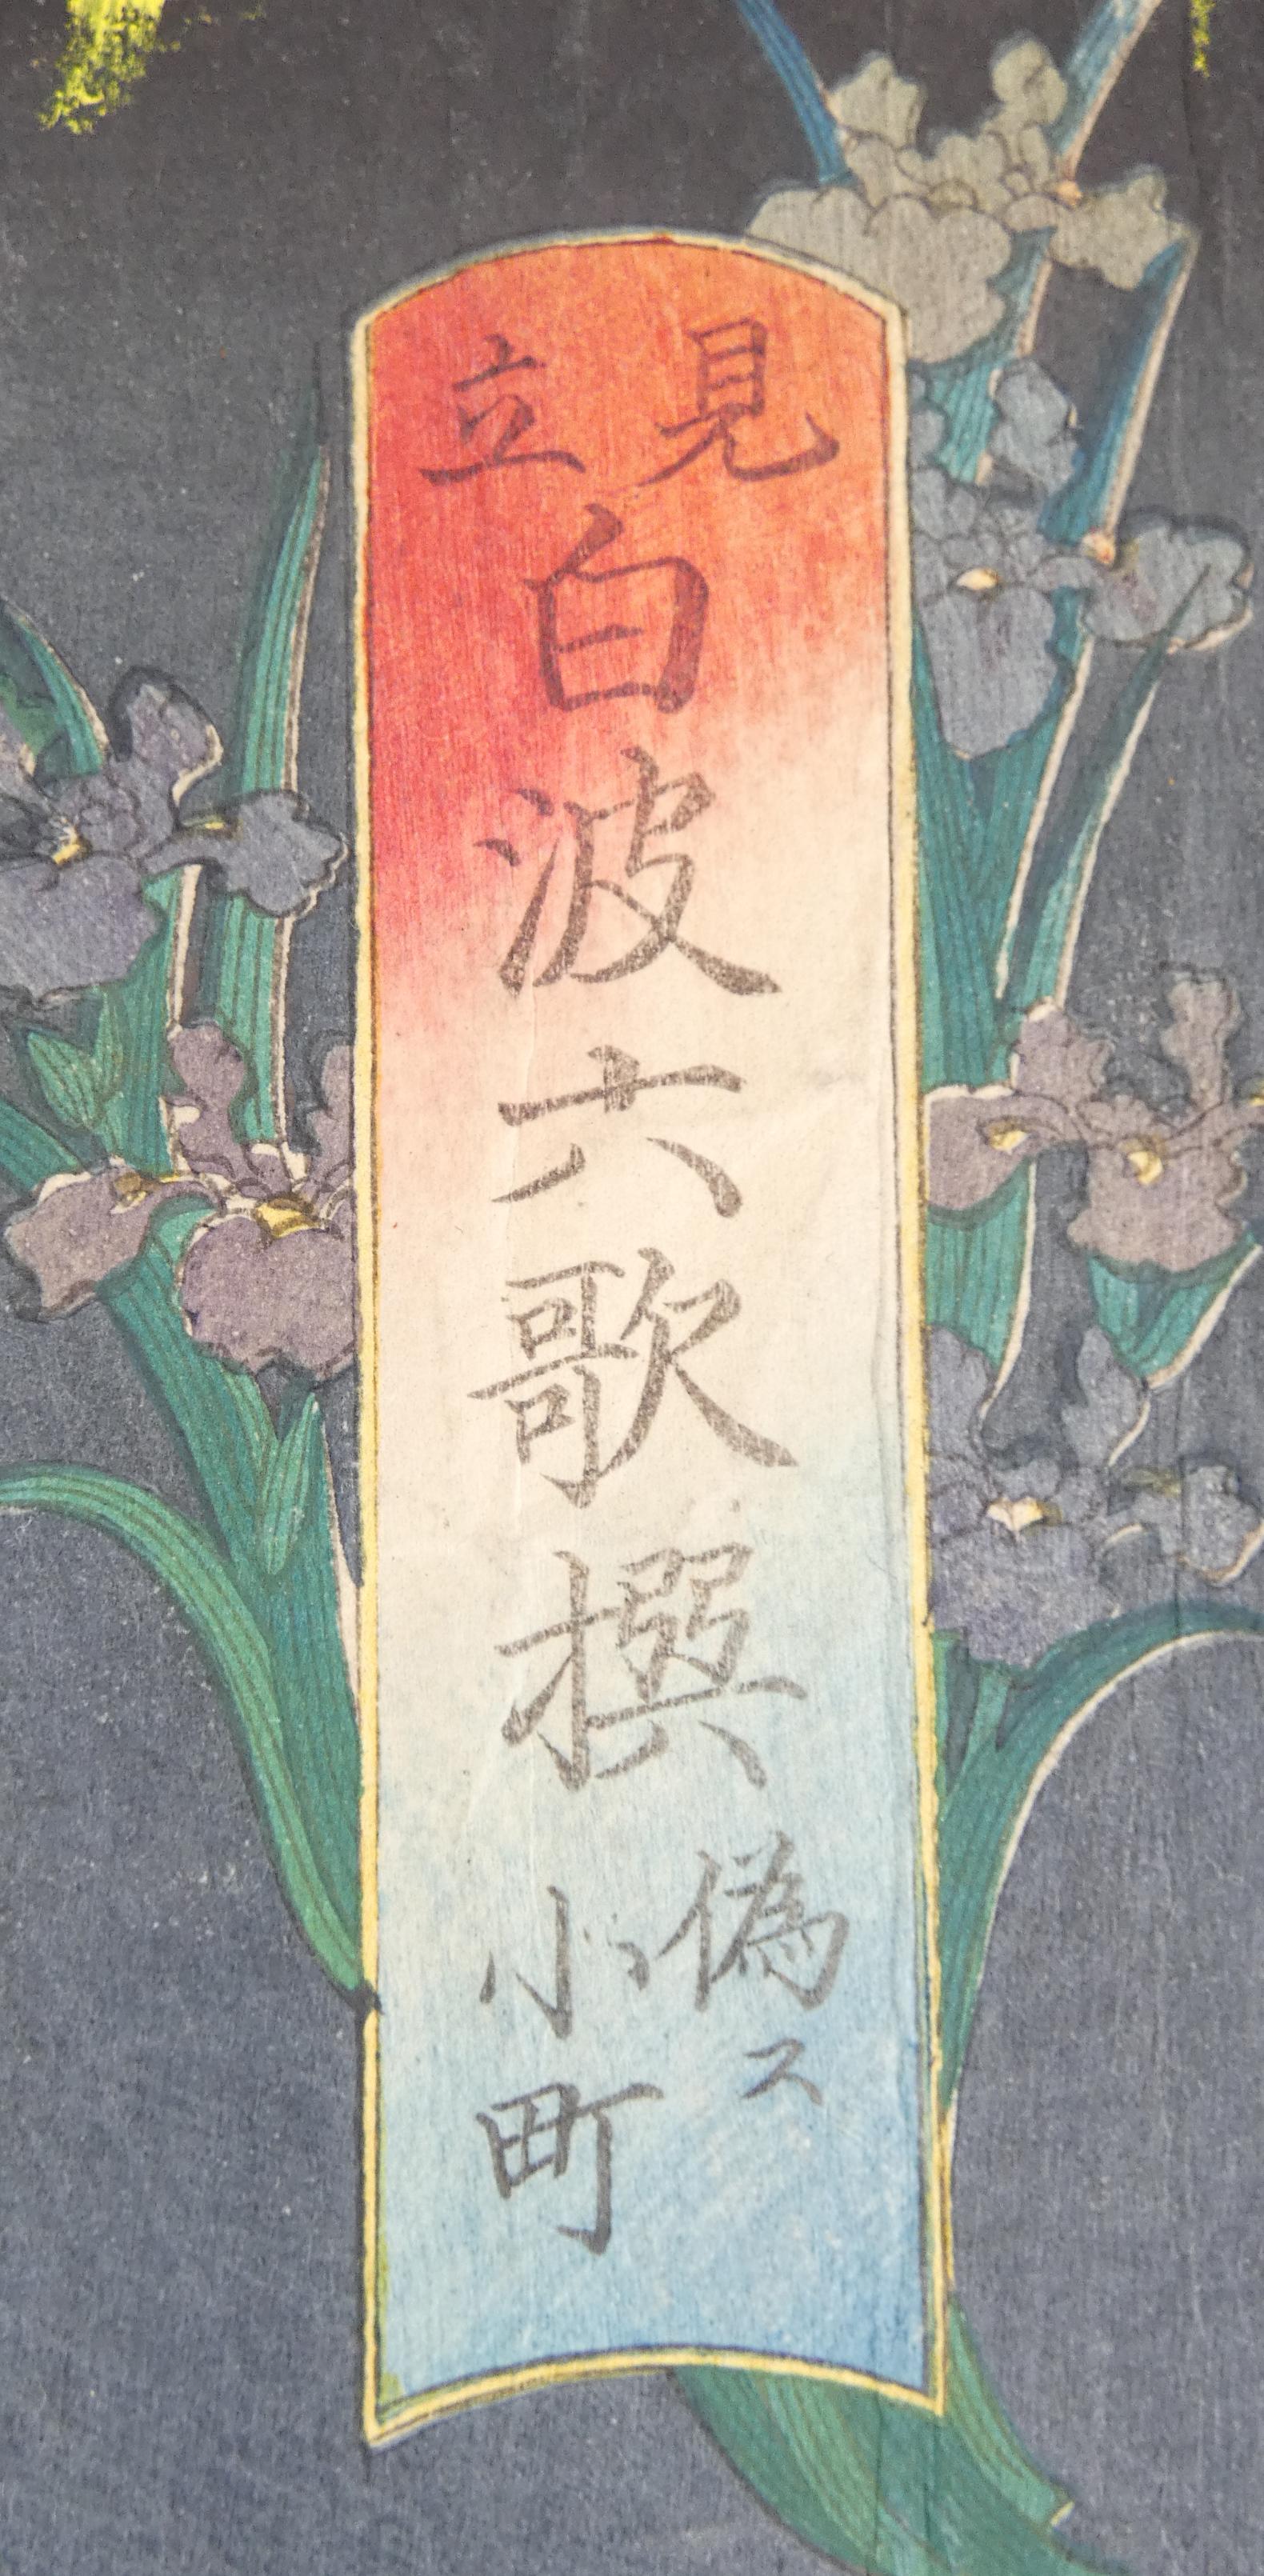 見立
白波六歌撰
偽ス
小町